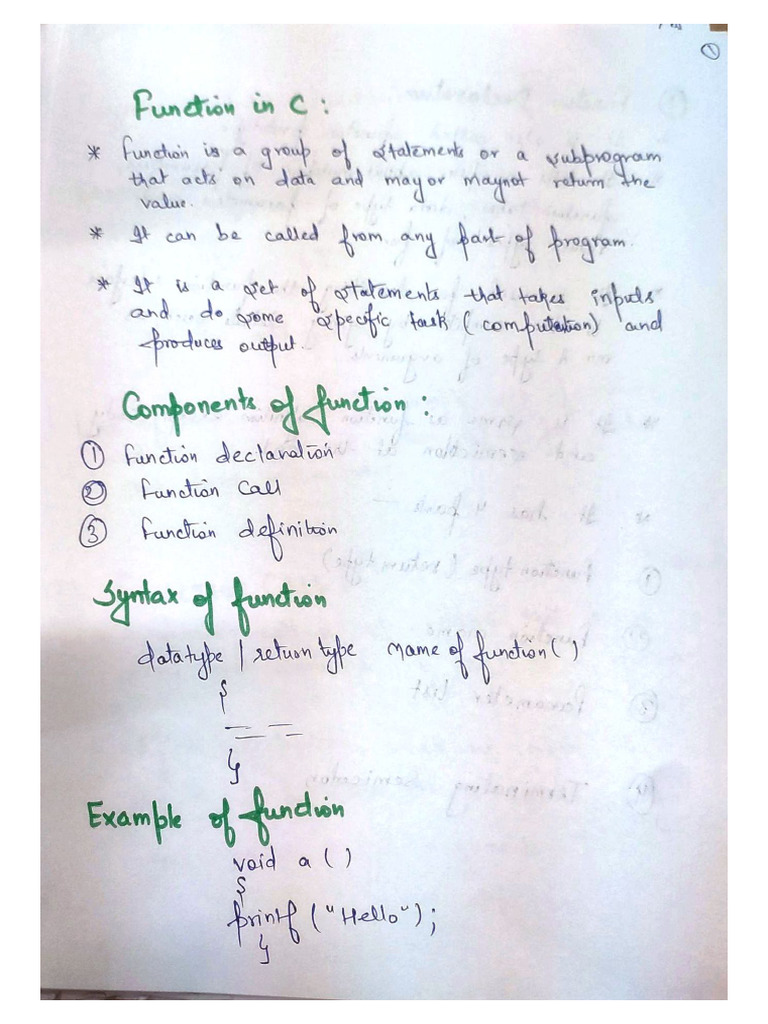 ①
Function in C :
* Function is a group of statements or a subprogram
that acts on data and may or maynot return the
value.
* It can be called from any part of program.
* It is a set of statements that takes inputs
and do some specific task (computation) and
produces output.
Components of function :
① function declaration
② function call
③ function definition
Syntax of function
datatype / return type name of function ( )
{
}
Example of function
void a ( )
{
printf ("Hello");
}